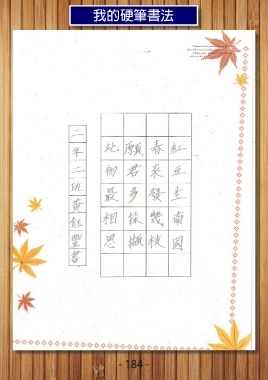 我的硬筆書法
紅豆生南國
春來發幾枝
願君多採擷
此物最相思
二年二班黃鈺豐書
- 184 -